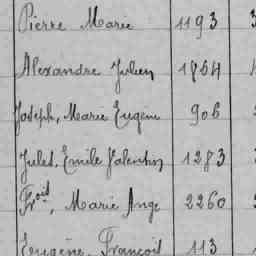 Pierre Marie 1193
Alexandre Julien 1864
Joseph, Marie Eugène 906
Jules, Emile Valentin 1283
Frois, Marie Ange 2260
Eugène, François 113